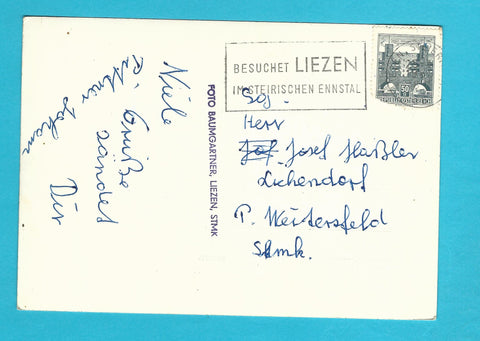 BESUCHET LIEZEN
IM STEIRISCHEN ENNSTAL
50
REPUBLIK ÖSTERREICH
FOTO BAUMGARTNER, LIEZEN, STMK
Viele
Grüße
sendet
Dir
Herr
Josef Haßler
Lichendorf
P. Weitersfeld
Stmk.